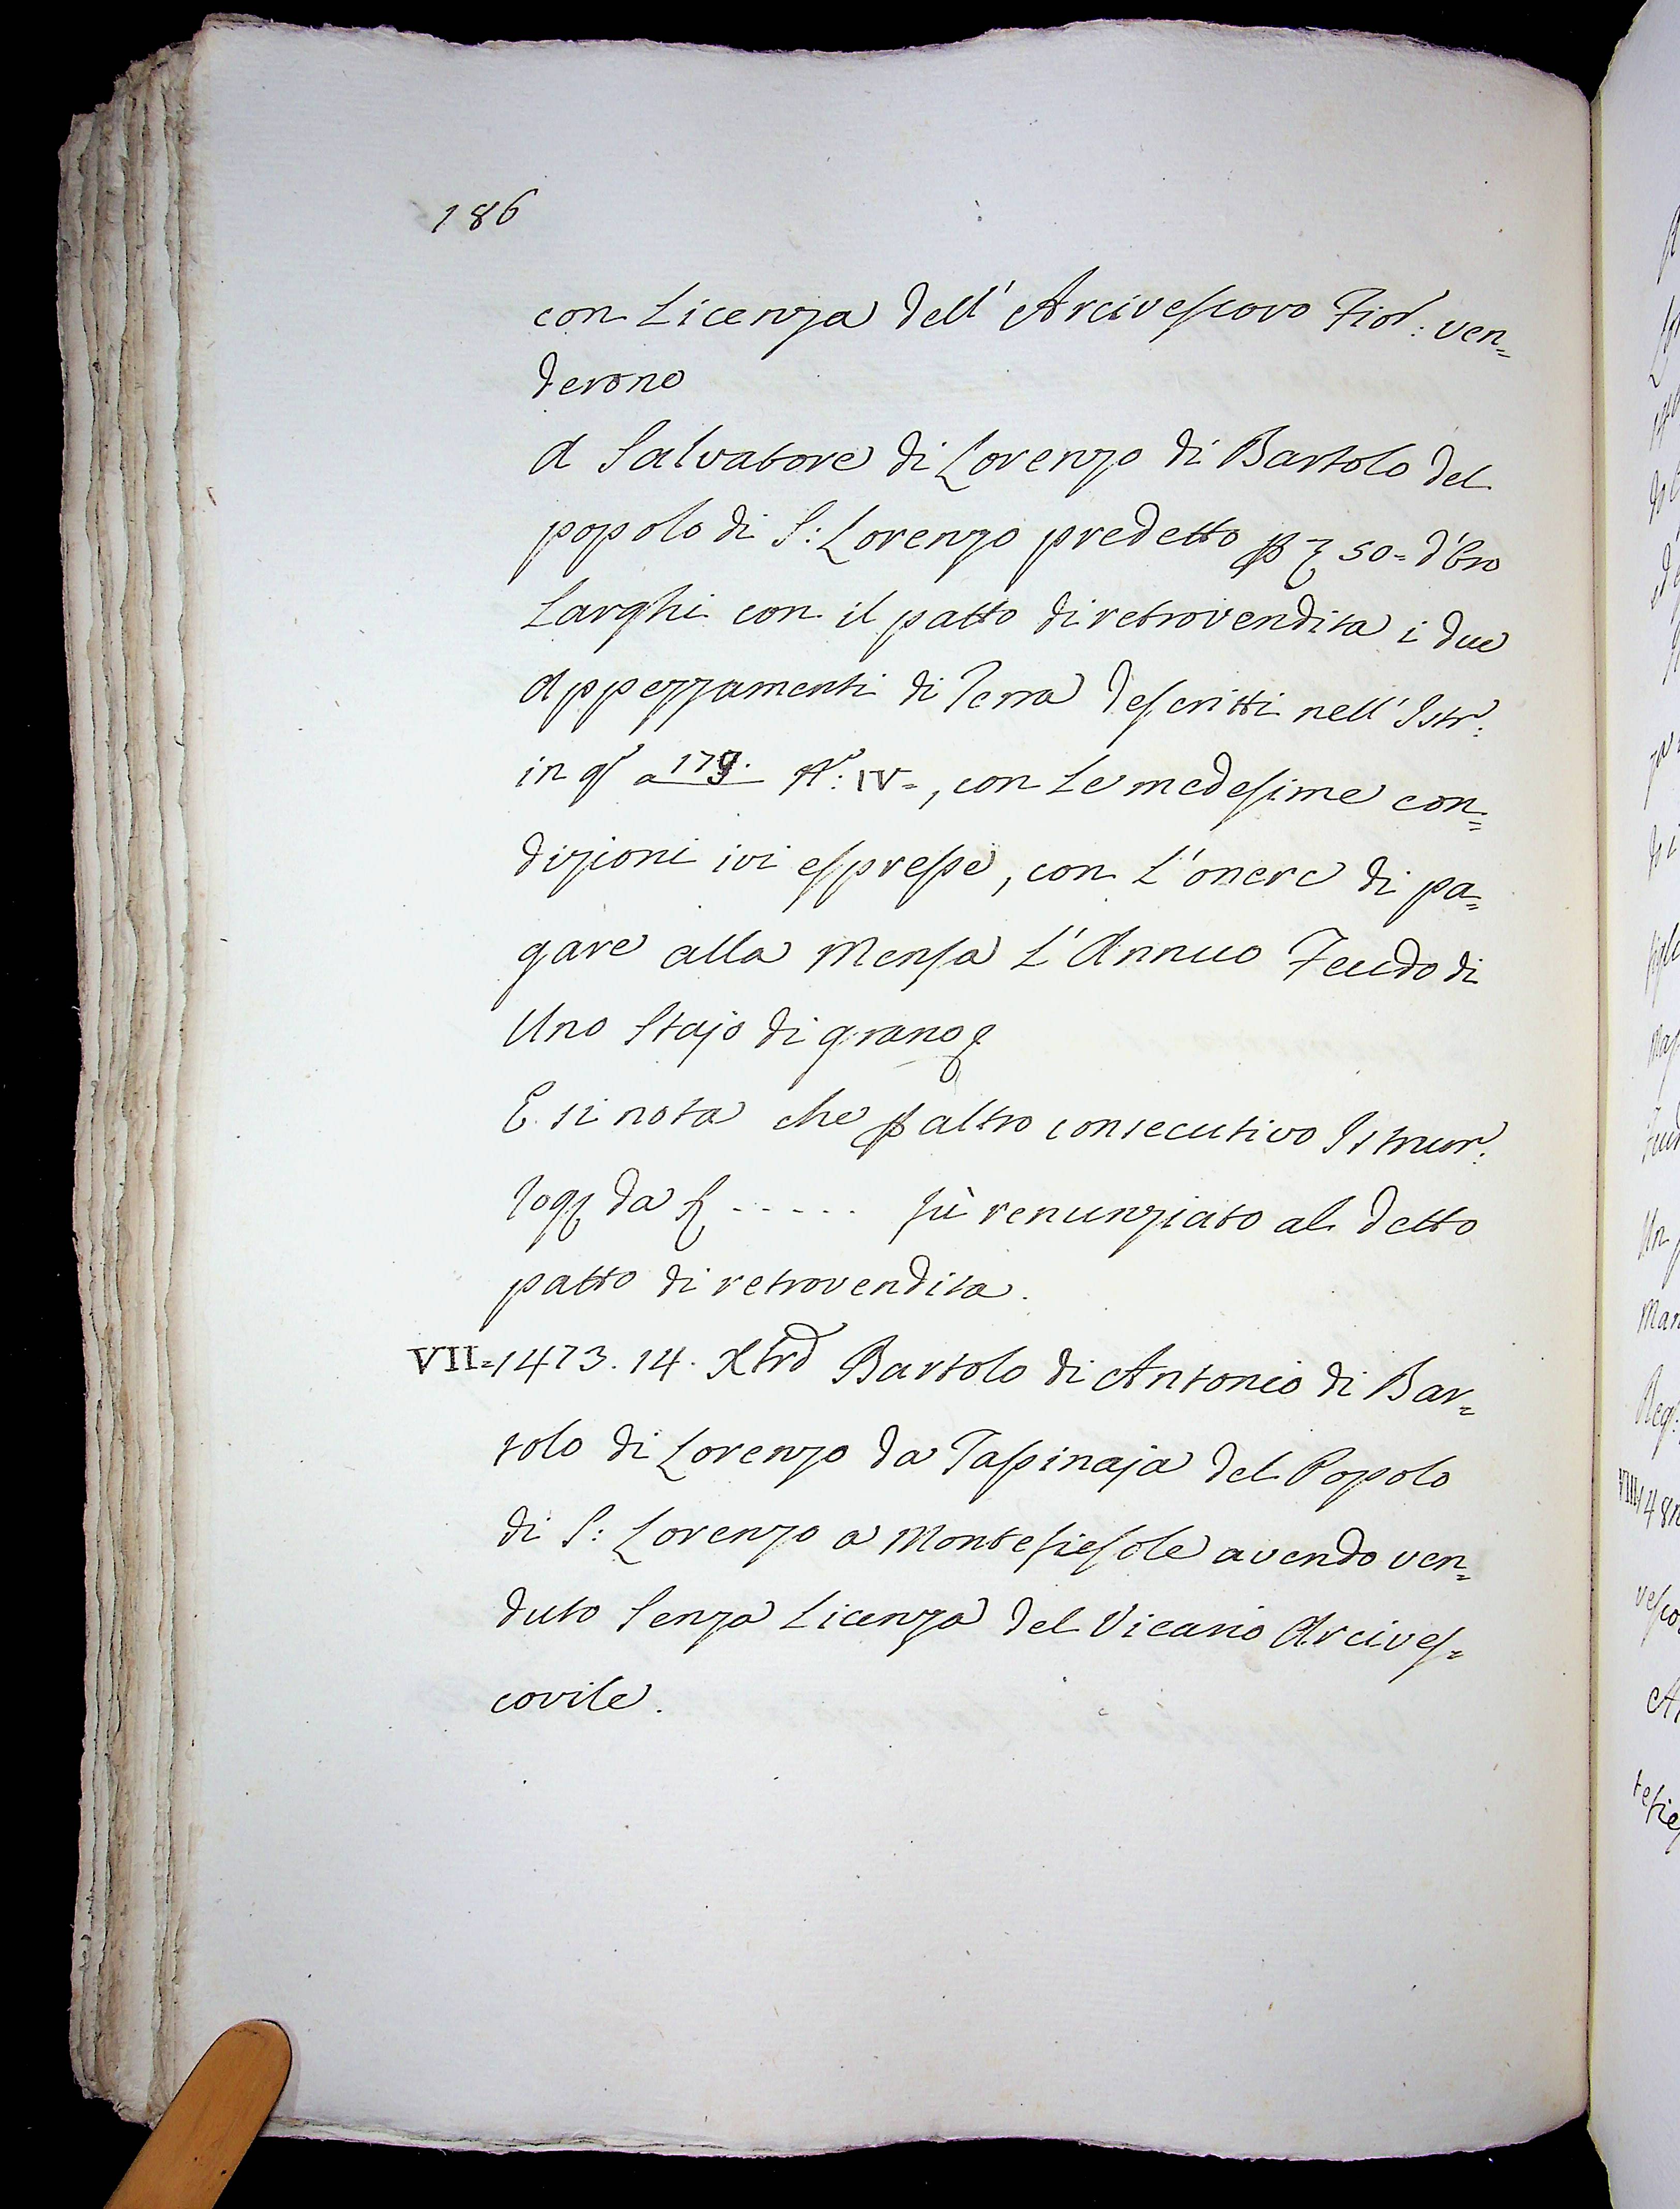 186
con Licenza dell' Arcivescovo Fior: ven=
derono
A Salvatore di Lorenzo di Bartolo del
popolo di S: Lorenzo predetto p 50= d'Oro
Larghi con il patto di retrovendita i due
Appezzamenti di Terra descritti nell' Istr:
in a 179. N: IV=, con le medesime con=
dizioni ivi espresse, con l'onere di pa=
gare alla Mensa l'Annuo Feudo di
Uno Stajo di grano
E si nota che p altro consecutivo Istrum:
rog da S ..... fù renunziato al detto
patto di retrovendita.
VII=1473. 14. Xbrd Bartolo di Antonio di Bar=
tolo di Lorenzo da Tassinaja del Popolo
di S: Lorenzo a Montefiesole avendo ven=
duto Senza Licenza del Vicario Arcives=
covile.